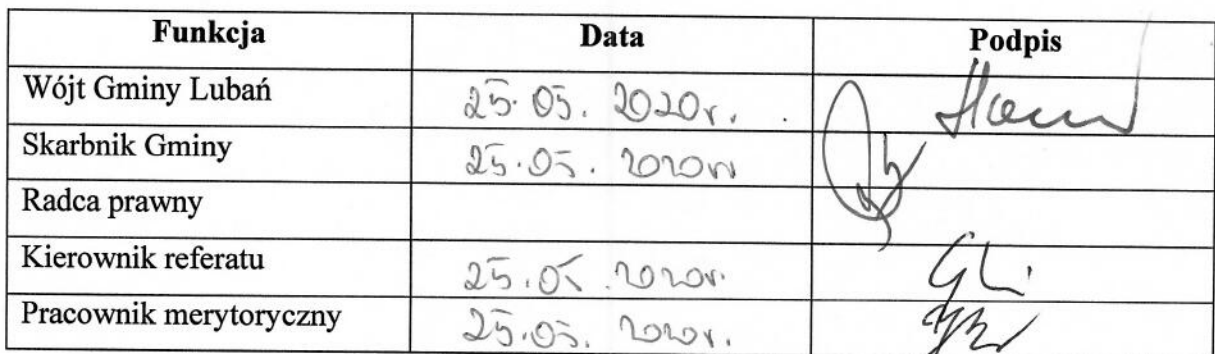 Funkcja Data Podpis
Wójt Gminy Lubań 25.05.2020r.
Skarbnik Gminy 25.05.2020r
Radca prawny
Kierownik referatu 25.05.2020r.
Pracownik merytoryczny 25.05.2020r.